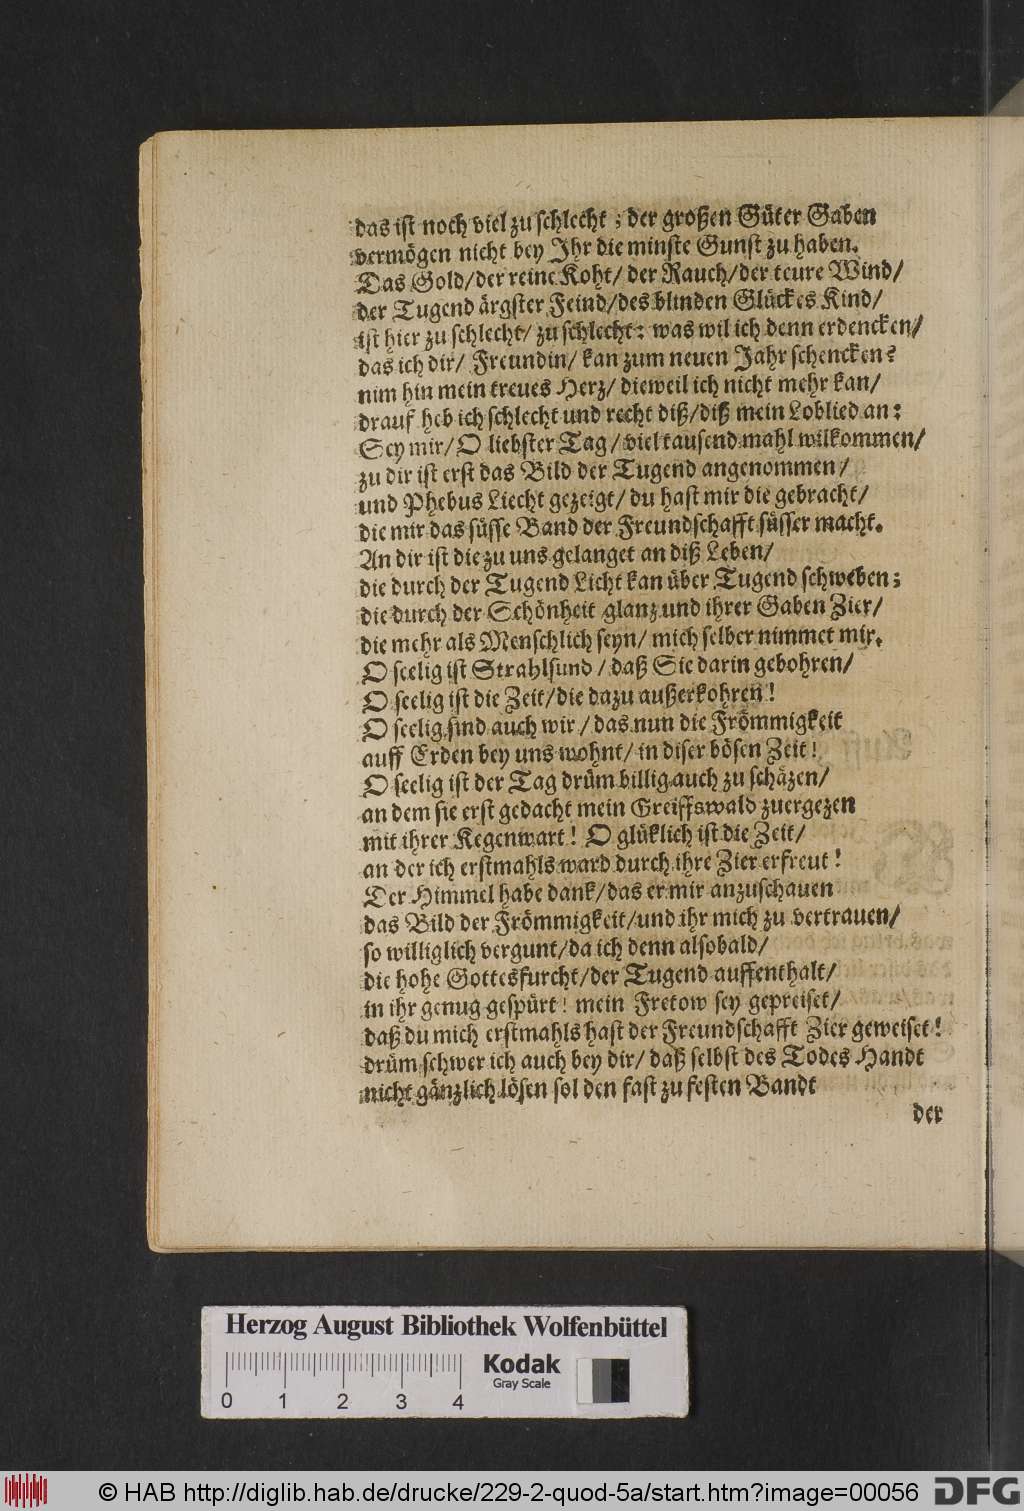 das ist noch viel zu schlecht; der großen Güter Gaben
vermögen nicht bey Ihr die minste Gunst zu haben.
Das Gold/der reine Koht/ der Rauch/der teure Wind/
der Tugend ärgster Feind/des blinden Glückes Kind/
ist hier zu schlecht/ zu schlecht: was wil ich denn erdencken/
das ich dir/ Freundin/ kan zum neuen Jahr schencken?
nim hin mein treues Herz/ dieweil ich nicht mehr kan/
drauf heb ich schlecht und recht diß/diß mein Loblied an:
Sey mir/ O liebster Tag/ viel tausend mahl wilkommen/
zu dir ist erst das Bild der Tugend angenommen/
und Phebus Liecht gezeigt/ du hast mir die gebracht/
die mir das süsse Band der Freundschafft süsser macht.
An dir ist die zu uns gelanget an diß Leben/
die durch der Tugend Licht kan über Tugend schweben;
die durch der Schönheit glanz und ihrer Gaben Zier/
die mehr als Menschlich seyn/ mich selber nimmet mir.
O seelig ist Strahlsund/ daß Sie darin gebohren/
O seelig ist die Zeit/die dazu außerkohren!
O seelig sind auch wir/ das nun die Frömmigkeit
auff Erden bey uns wohnt/ in diser bösen Zeit!
O seelig ist der Tag drüm billig auch zu schäzen/
an dem sie erst gedacht mein Greiffswald zuergezen
mit ihrer Kegenwart! O glüklich ist die Zeit/
an der ich erstmahls ward durch ihre Zier erfreut!
Der Himmel habe dank/das er mir anzuschauen
das Bild der Frömmigkeit/und ihr mich zu vertrauen/
so williglich vergunt/da ich denn alsobald/
die hohe Gottesfurcht/der Tugend auffenthalt/
in ihr genug gespürt! mein Fretow sey gepreiset/
daß du mich erstmahls hast der Freundschafft Zier geweiset!
drüm schwer ich auch bey dir/ daß selbst des Todes Handt
nicht gänzlich lösen sol den fast zu festen Bandt
der
Herzog August Bibliothek Wolfenbüttel
Kodak
Gray Scale
0 1 2 3 4
© HAB http://diglib.hab.de/drucke/229-2-quod-5a/start.htm?image=00056
DFG